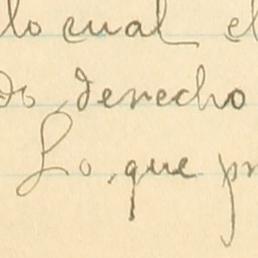 lo cual el
do derecho
Lo que pr